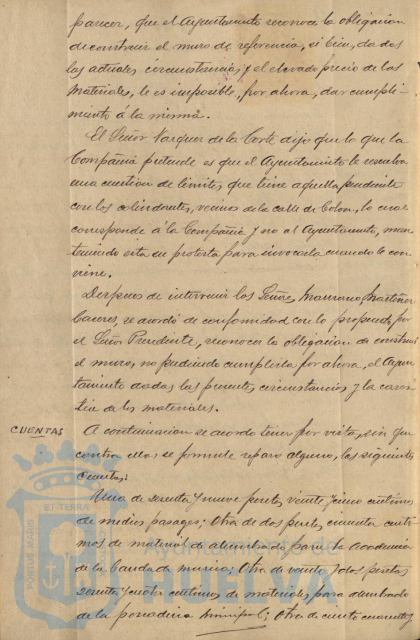 parecer, que el Ayuntamiento reconoce la obligacion
de construir el muro de referencia, si bien, dadas
las actuales circunstancias, y el elevado precio de los
materiales, le es imposible, por ahora, dar cumpli-
miento á la misma.
El Señor Vazquez de la Corte dijo que lo que la
Compañia pretende es que el Ayuntamiento le resuelva
una cuestion de limites, que tiene aquella pendiente
con los colindantes, vecinos de la calle de Colon, lo cual
corresponde á la Compañia y no al Ayuntamiento, man-
teniendo esta su protesta para invocarla cuando le con-
viene.
Despues de intervenir los Señores Mascaros, Martinez
Caceres, se acordó de conformidad con lo propuesto por
el Señor Presidente, reconocer la obligacion de construir
el muro, no pudiendo cumplirla por ahora, el Ayun-
tamiento dadas las presentes circunstancias y la cares-
tia de los materiales.
CUENTAS
A continuacion se acordó tener por vista, sin que
contra ellas se formule reparo alguno, las siguientes
cuentas:
Una de sesenta y nueve pesetas, veinte y cinco centimos
de medios pasages; Otra de dos pesetas, cincuenta centi-
mos de material de alumbrado para la Academia
de la Banda de musica; Otra de veinte y dos pesetas
sesenta y centimos de materiales para alumbrado
de la panaderia Municipal; Otra de ciento cuarenta y
PORTUS MARIS ET TERRÆ
Ayuntamiento de
HUELVA